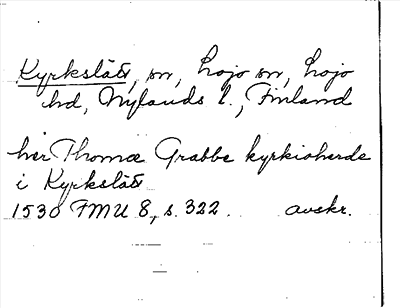 Kyrkslätt, sn, Lojo sn, Lojo
hd, Nylands l., Finland
her Thomæ Grabbe kyrkioherde
i Kyrkslätt
1530 FMU 8, s. 322. avskr.